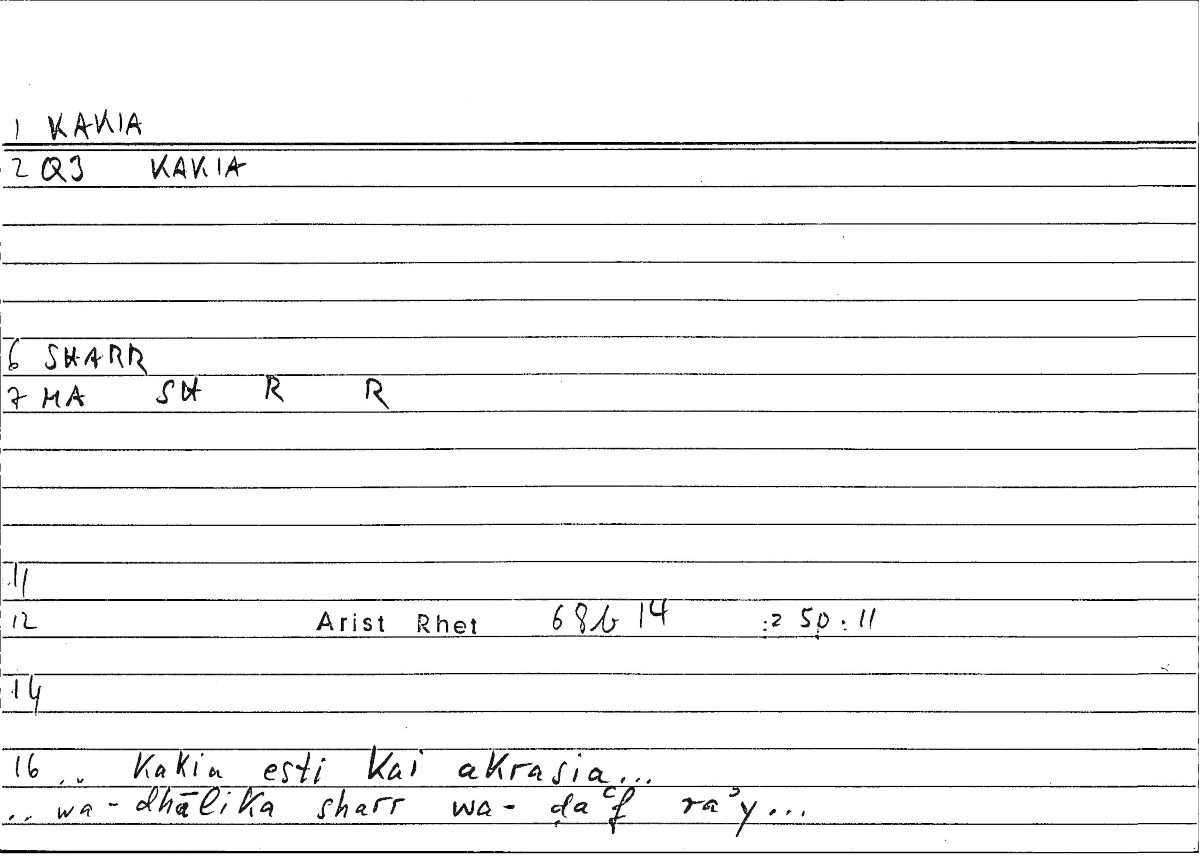 1 KAKIA
2 Q3 KAKIA
6 SHARR
7 MA SH R R
11
12 Arist Rhet 68b14 :2 50:11
14
16 .. Kakia esti Kai akrasia...
.. wa-dhāliKa sharr wa-ḍaʿf raʾy...